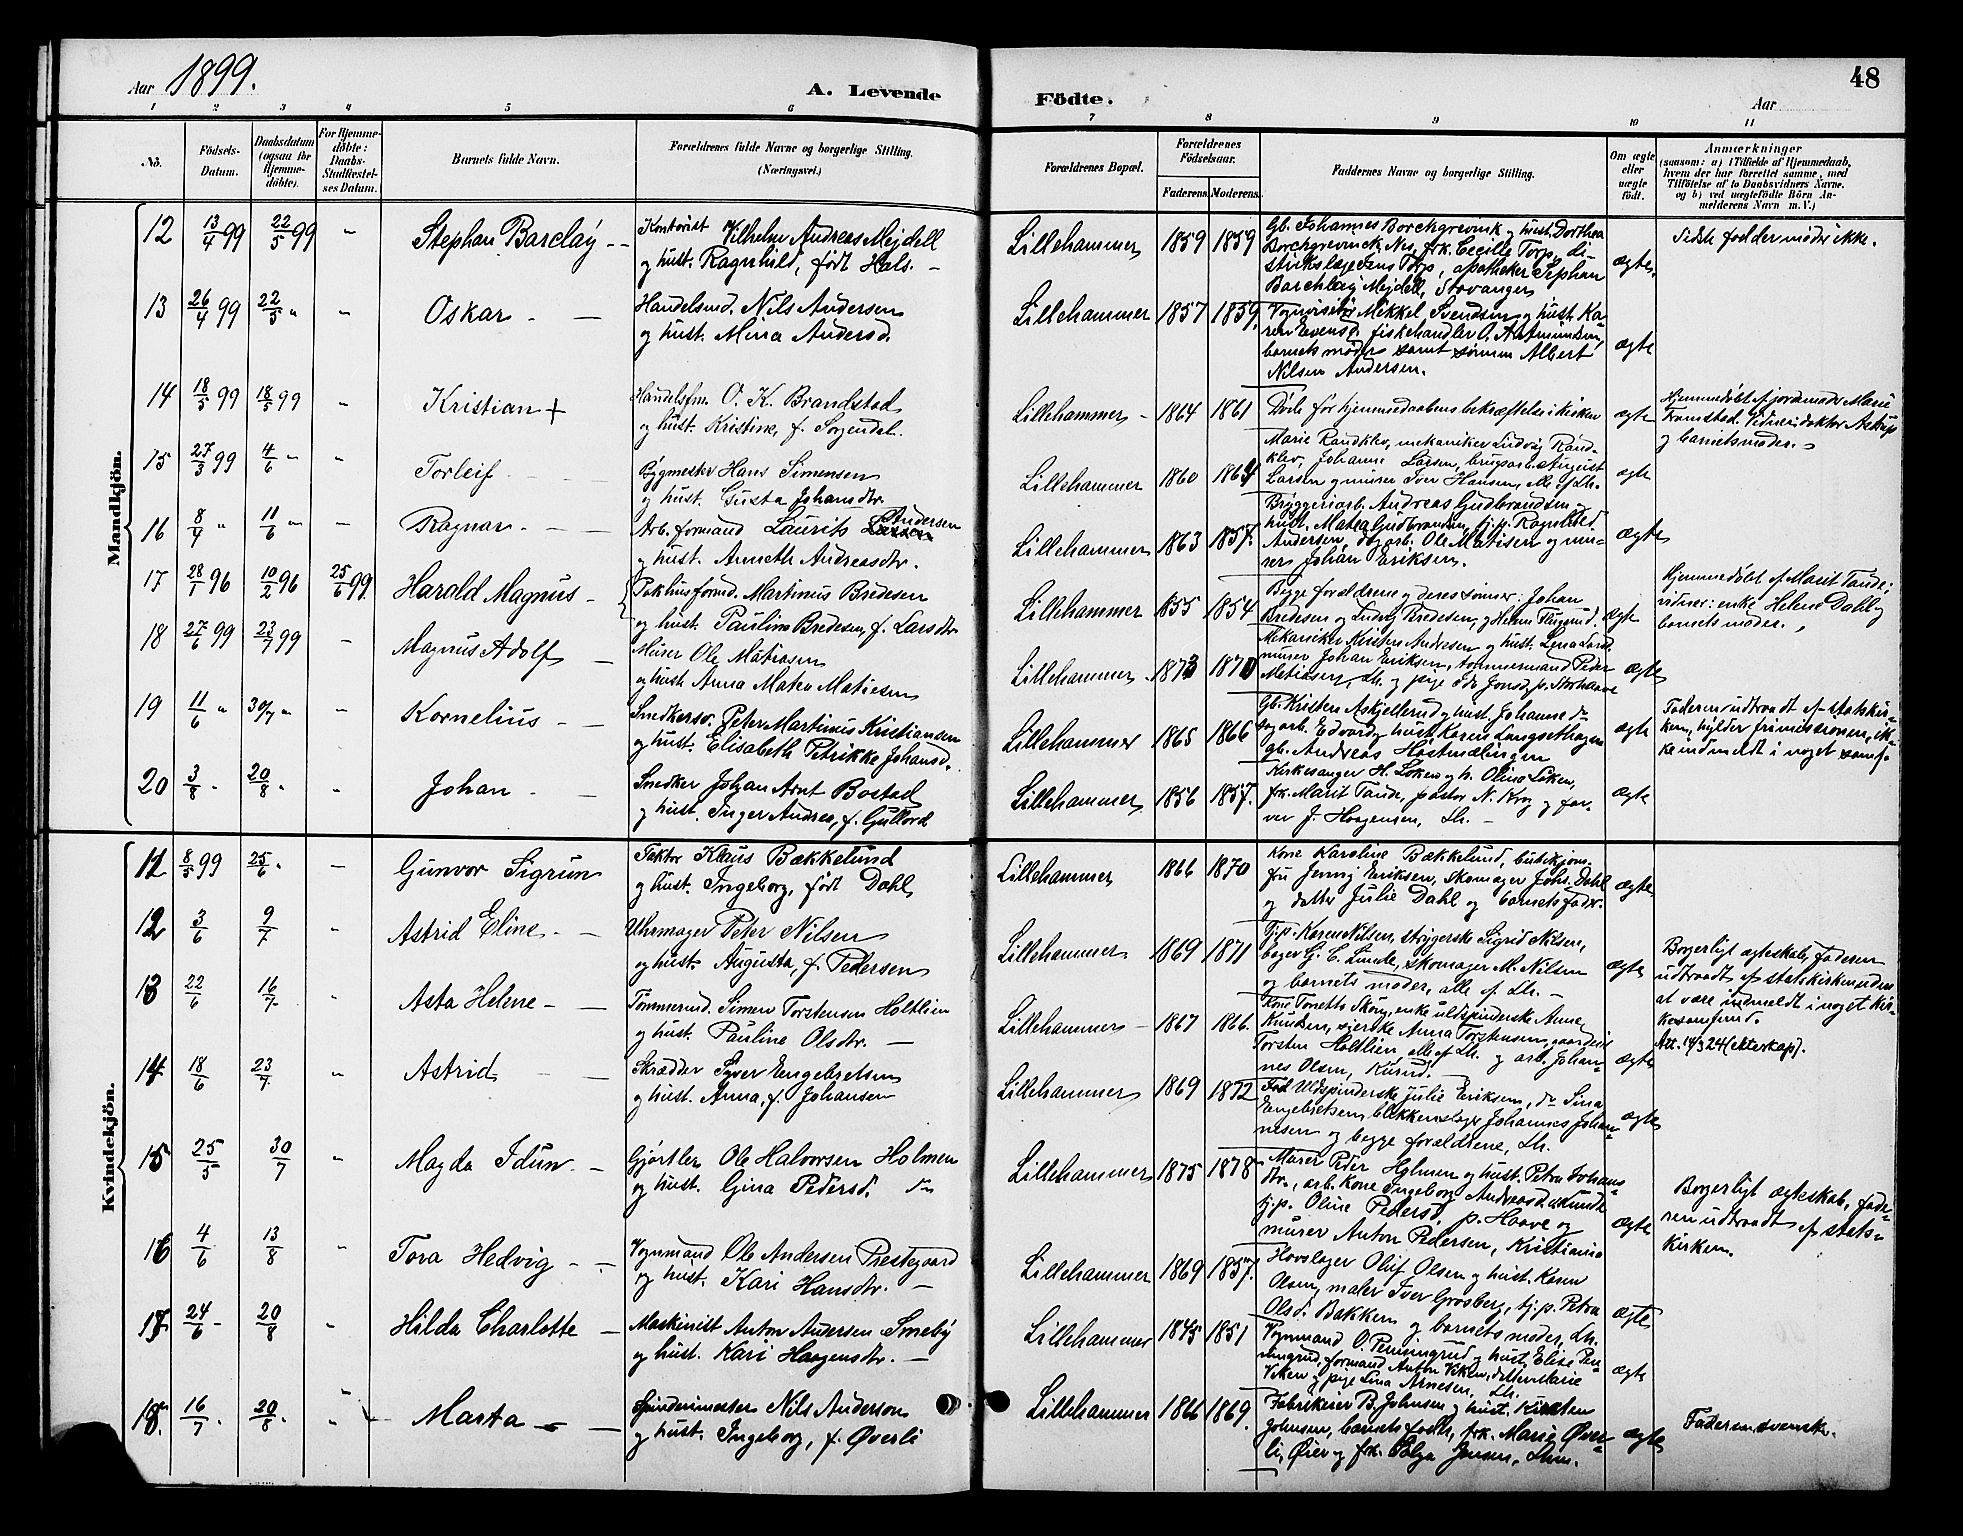 Aar 1899.
A. Levende
Födte.
48
Aar
1 2 3 4 5 6 7 8 9 10 11
No.
Födsels-
Datum.
Daabsdatum
(ogsaa for
Hjemme-
döbte).
For Hjemme-
döbte:
Daabs-
Stadfæstel-
ses Datum.
Barnets fulde Navn.
Forældrenes fulde Navne og borgerlige Stilling.
(Næringsvei.)
Forældrenes Bopæl.
Forældrenes
Födselsaar.
Faderens.
Moderens.
Faddernes Navne og borgerlige Stilling.
Om ægte
eller
uægte
födt.
Anmærkninger
(saasom: a) i Tilfælde af Hjemmedaab,
hvem der har forrettet samme, med
Tilföielse af to Daabsvidners Navne.
og b) ved uægtefödte Börn An-
melderens Navn m. V.)
Mandkjön.
12 13/4 99 22/5 99 " Stephan Barclay Kontorist Vilhelm Andreas Mejdell
og hust. Ragnhild, født Hals.
Lillehammer 1859 1859
Gb. Johannes Borchgrevink og hust. Dorthea
Borchgrevinck, Nes, frk. Cecilie Torp, di-
strikslæge Torp, apotheker Stephan
Barchlay Mejdell, Stavanger
ægte.
Sidste fadder møder ikke.
13 26/4 99 22/5 " " Oskar Handelsmd. Nils Andersen
og hust. Mina Andersd.
Lillehammer 1857 1859.
Mikkel Svendsen og hust. Ka-
ren Evensd, fiskehandler O. A. Amundsen,
barnets moder samt sønnen Albert
Nilsen Andersen.
ægte
14 18/5 99 18/5 99 " Kristian + Handelsfm. O. K. Brandstad
og hust. Kristine, f. Sørgendal.
Lillehammer 1864 1861
Døde før hjemmedaabens bekræftelse i kirken
ægte
Hjemmedøbt af jordmoder Marie
Tramstad. Vidner: doktor Astrup
og barnets moder.
15 27/3 99 4/6 " " Torleif Bygmester Hans Simensen
og hust. Gusta Johansdtr.
Lillehammer 1860 1864
Marie Randklev, mekaniker Ludvig Rand-
klev, Johanne Larsen, brugsarb. August
Larsen og murer Iver Hansen, alle af Lh.
ægte
16 8/4 " 11/6 " " Ragnar Arb. formand Laurits Andersen
og hust. Anneth Andreasdtr.
Lillehammer 1863 1857.
Bryggeriarb. Andreas Gudbrandsen og
hust. Matea Gudbrandsen, tj.p. Ragnhild
Andersen, dagarb. Ole Matisen og mu-
rer Johan Eriksen.
ægte
17 28/1 96 10/2 96 25/6 99 Harald Magnus Pakhusformd. Martinus Bredesen
og hust. Pauline Bredesen, f. Larsdtr
Lillehammer 1855 1854
Begge forældrene og deres sønner: Johan
Bredesen og Ludvig Bredesen, og Helene
ægte
Hjemmedøbt af Marit Tande;
vidner: enke Helene Dahl og
barnets moder.
18 27/6 99 23/7 99 " Magnus Adolf Murer Ole Matiasen
og hust. Anna Matea Matiesen
Lillehammer 1873 1870
Mekaniker Kristen Andersen og hust. Lena
murer Johan Eriksen, tømmermand Peder
Matiasen, Lh. og pige Oda Jonsd,
ægte
19 11/6 " 30/7 " " Kornelius Snedkersv. Peter Martinus Kristiansen
og hust. Elisabeth Petrikke Johansd.
Lillehammer 1865 1866
Gb. Kristen Askjellerud og hust. Johanne do
arb. Edvard og hust. Karen Langsethagen
gb. Andreas Hostmælingen
ægte
Faderen udtraadt af statskir-
ken, hylder frimissionen, ik-
ke indmeldt i noget samf.
20 3/8 " 20/8 " " Johan Snedker Johan Arnt Bostad
og hust. Inger Andrea, f. Gullord
Lillehammer 1856 1857.
Kirkesanger H. Løken og h. Olina Løken,
frk. Marit Tande, pastor N. Krog og far-
ver J. Haagensen, Lh.
ægte
Kvindekjön.
11 8/5 99 25/6 " " Gunvor Sigrun Faktor Klaus Bækkelund
og hust. Ingeborg, født Dahl
Lillehammer 1866 1870
Kone Karoline Bækkelund, butikjom-
fru Jenny Eriksen, Skomager Johs. Dahl
og datter Julie Dahl og barnets fader.
ægte
12 3/6 9/7 " Astrid Eline Uhrmager Peter Nilsen
og hust. Augusta, f. Pedersen
Lillehammer 1869 1871
Tj.p. Karen Nilsen, strygerske Sigrid Nilsen,
bager G. E. Lunde, skomager M. Nilsen
og barnets moder, alle af Lh.
ægte
Borgerligt ægteskab, faderen
udtraadt af statskirken uden
at være indmeldt i noget kir-
kesamfund.
Att. 14/3 24 (ekteskap).
13 22/6 16/7 " Asta Helene Tømmermd. Simen Torstensen Holtlien
og hust. Pauline Olsdtr.
Lillehammer 1867 1866.
Kone Tonetta Skog, enke uldspinderske Anne
Knudsen, sierske Anna Torstensen, gaardeier
Torsten Holtlien alle af Lh. og arb. Johan-
nes Olsen,
ægte
14 18/6 23/7 " Astrid Skrædder Syver Engebretsen
og hust. Anna, f. Johansen
Lillehammer 1869 1872
Uldspinderske Julie Eriksen, do Sina
Engebretsen, blikkenslager Johannes Johan-
nesen og begge forældrene, Lh.
ægte
15 25/5 30/7 " Magda Idun Gjørtler Ole Halvorsen Holmen
og hust. Gina Pedersd. do
Lillehammer 1875 1878
Murer Peder Holmen og hust. Petra Johans-
dtr., arb. kone Ingeborg Andreasd.
tj.p. Oline Pedersd, p. Haave og
murer Anton Pedersen, Kristiania
ægte
Borgerligt ægteskab, fade-
ren udtraadt af stats-
kirken.
16 4/6 13/8 " Tora Hedvig Vognmand Ole Andersen Prestegaard
og hust. Kari Hansdtr.
Lillehammer 1869 1857.
Hovslager Oluf Olsen og hust. Karen
Olsen, maler Iver Grosberg, tj.p. Petra
Olsd. Bakken og barnets moder, Lh.
ægte
17 24/6 20/8 " Hilda Charlotte Maskinist Anton Andersen Smeby
og hust. Kari Haagensdtr.
Lillehammer 1845 1851
Vognmand O. Pinningrud og hust. Elise Pin-
ningrud, formand Anton Viken, datter Marie
Viken og pige Lina Arnesen, Lh.
ægte
18. 16/7 20/8 " Marta Spinderimester Nils Anderson
og hust. Ingeborg, f. Øverli
Lillehammer 1866 1869.
Fabrikeier B. Johnsen og hust. Kirsten
Johnsen, barnets fader, frk. Marie Øver-
li, Øier og frk. Helga Jensen, Lhm.
ægte
Faderen svensk.